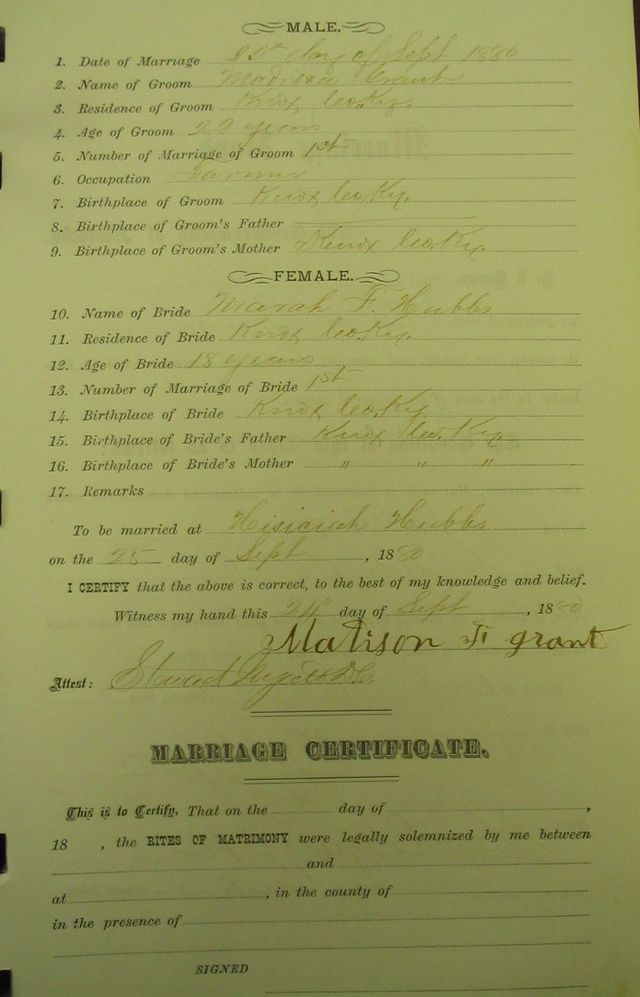 MALE.
1. Date of Marriage 25th day of Sept 1880
2. Name of Groom Madison Grant
3. Residence of Groom Knox Co. Ky.
4. Age of Groom 22 years
5. Number of Marriage of Groom 1st
6. Occupation Farmer
7. Birthplace of Groom Knox Co. Ky.
8. Birthplace of Groom's Father
9. Birthplace of Groom's Mother Knox Co. Ky.
FEMALE.
10. Name of Bride Marah F. Hubbs
11. Residence of Bride Knox Co. Ky.
12. Age of Bride 18 years
13. Number of Marriage of Bride 1st
14. Birthplace of Bride Knox Co. Ky
15. Birthplace of Bride's Father Knox Co. Ky.
16. Birthplace of Bride's Mother " " "
17. Remarks
To be married at Hisiciah Hubbs
on the 25 day of Sept , 1880
I CERTIFY that the above is correct, to the best of my knowledge and belief.
Witness my hand this 24 day of Sept , 1880
Matison F grant
Attest: Stewart
MARRIAGE CERTIFICATE.
This is to Certify, That on the day of ,
18 , the RITES OF MATRIMONY were legally solemnized by me between
and
at , in the county of
in the presence of
SIGNED